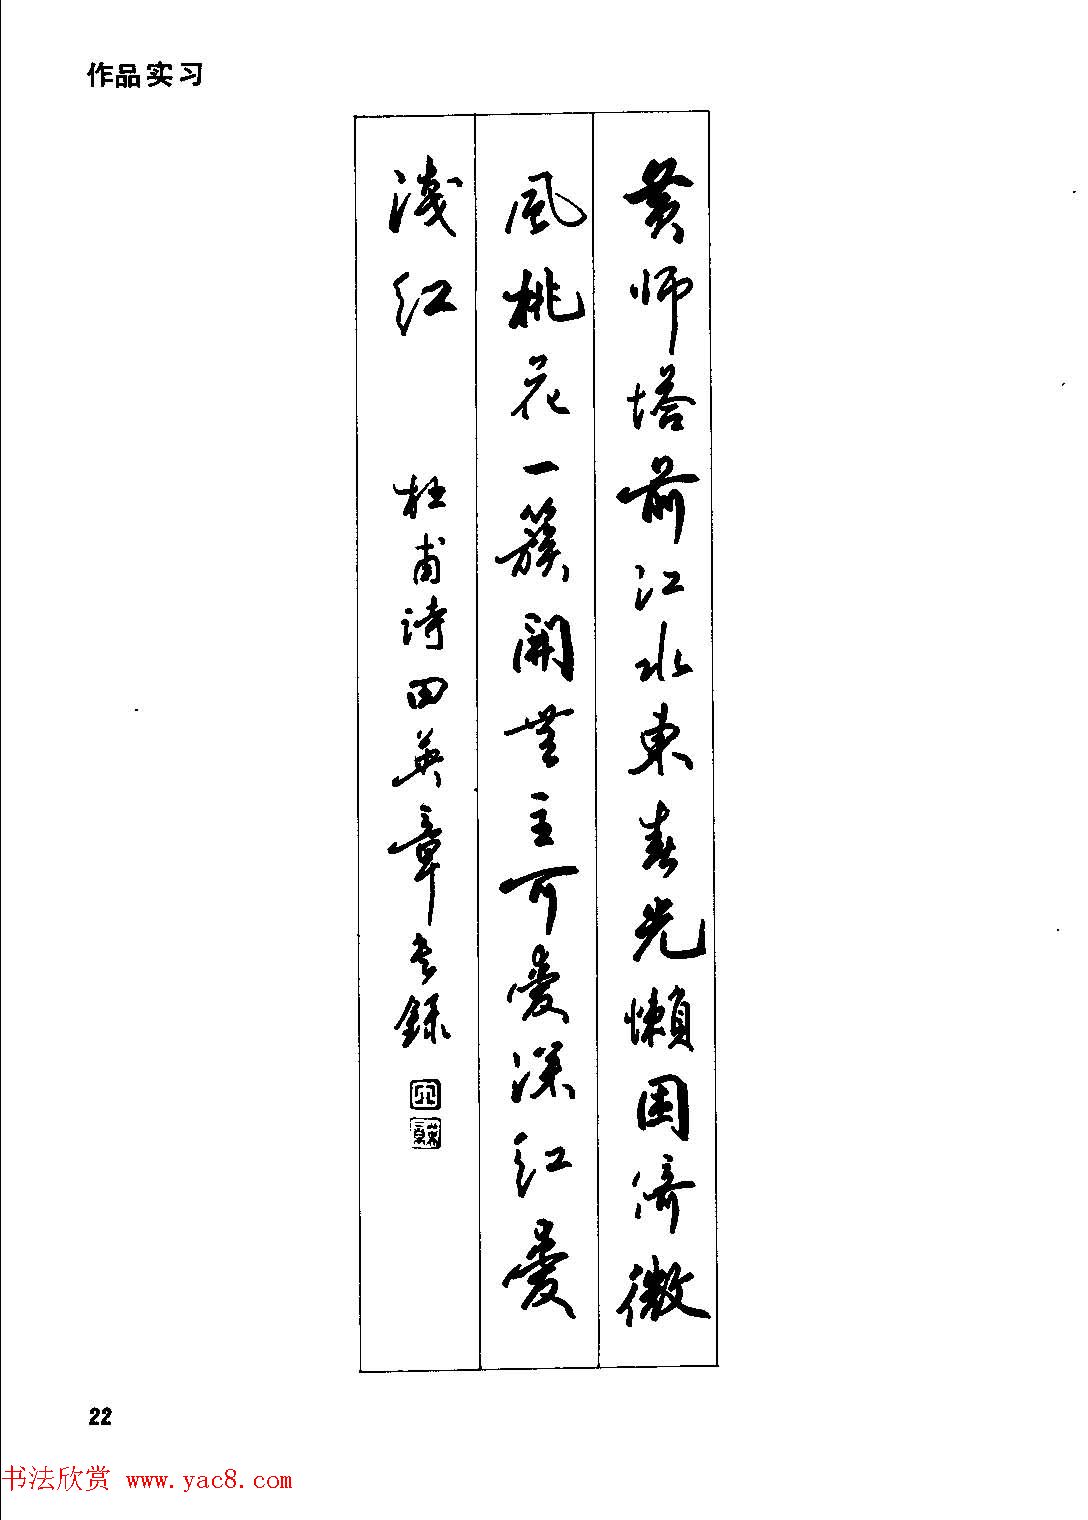 作品实习
黄师塔前江水東春光懒困倚微
風桃花一簇開無主可愛深红愛
浅红
杜甫诗田英章书録
22
书法欣赏 www.yac8.com